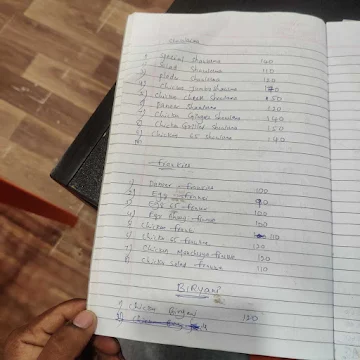 Shawarma
1) Special Shawarma 140
2) Salad Shawarma 110
3) Plate Shawarma 120
4) Chicken Jumbo Shawarma 170
5) Chicken Cheese Shawarma 150
6) Paneer Shawarma 120
7) Chicken Ginger Shawarma 140
8) Chicken Grilled Shawarma 150
9) Chicken 65 Shawarma 140
10)
Frankies
1) Paneer Frankie 100
2) Egg Frankie 90
3) Egg 65 Frankie 100
4) Frankie 100
5) Chicken Frankie 110
6) Chicken 65 Frankie 120
7) Chicken Manchuria Frankie 130
8) Chicken Salad Frankie 110
BIRYANI
1) Chicken Biryani 120
2) Chicken